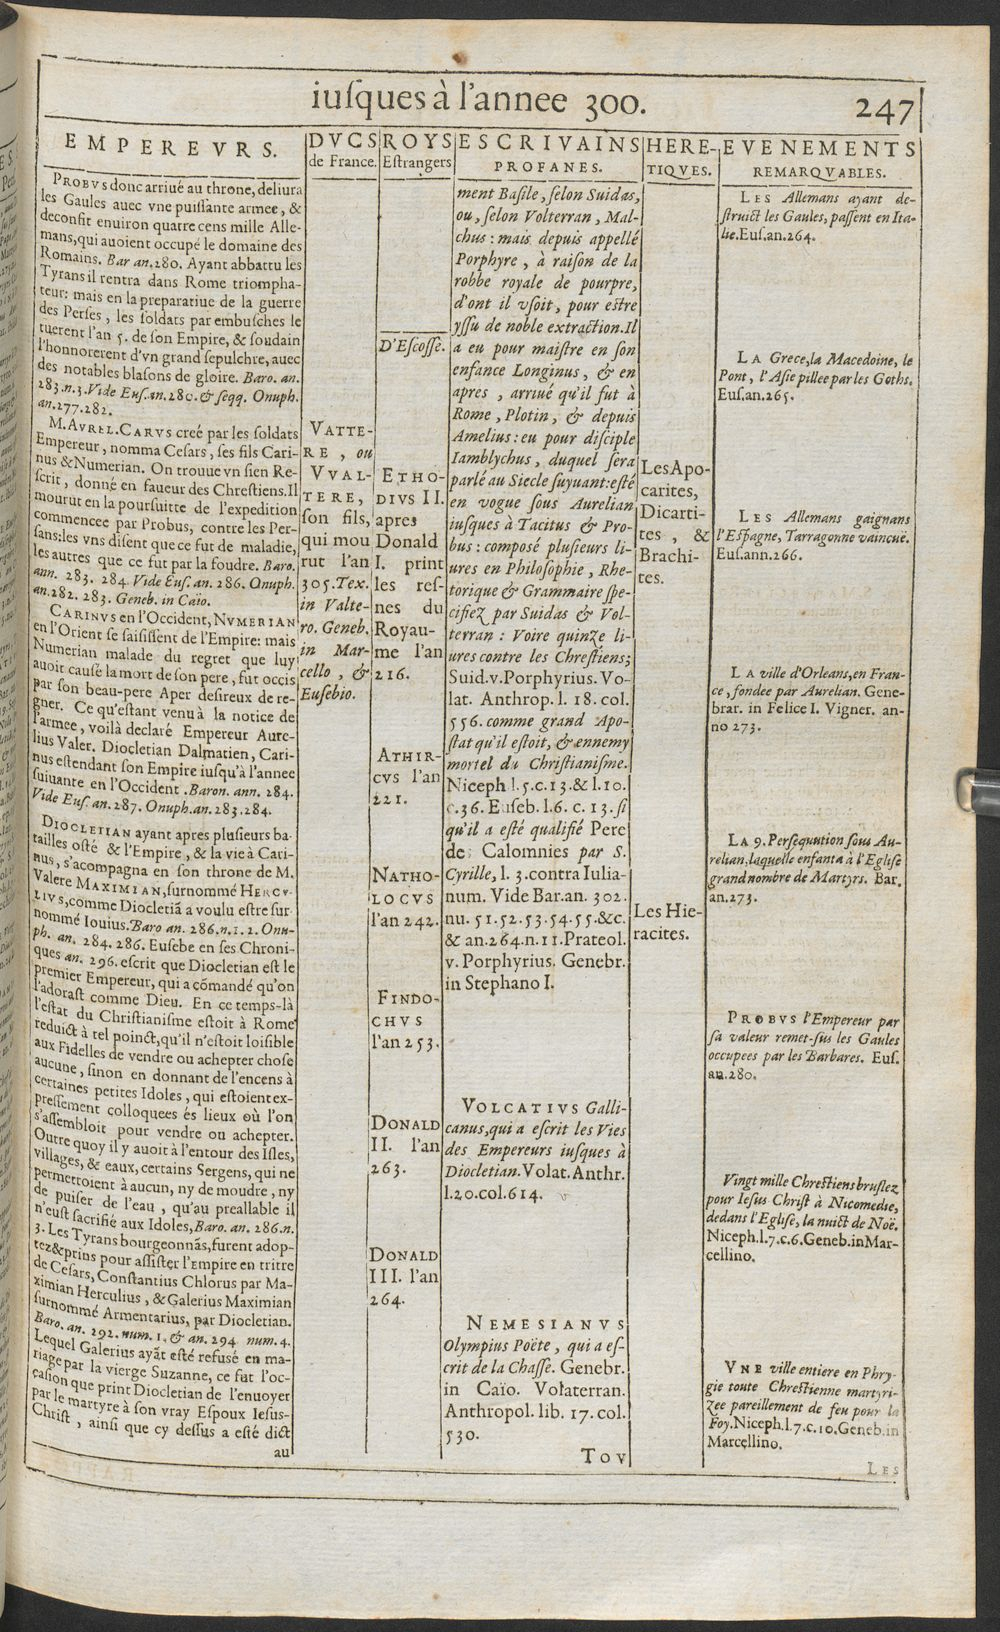 iuſques à l'annee 300.
247
EMPEREVRS.
PROBVS donc arriué au throne, deliura
les Gaules auec vne puiſſante armee, &
deconfit enuiron quatre cens mille Alle-
mans, qui auoient occupé le domaine des
Romains. Bar an. 280. Ayant abbattu les
Tyrans il rentra dans Rome triompha-
teur: mais en la preparatiue de la guerre
des Perſes, les ſoldats par embuſches le
tuerent l'an 5. de ſon Empire, & ſoudain
l'honnorerent d'vn grand ſepulchre, auec
des notables blaſons de gloire. Baro. an.
283. n. 3. Vide Euſ. an. 280. & ſeqq. Onuph.
an. 277. 282.
M. AVREL. CARVS creé par les ſoldats
Empereur, nomma Ceſars, ſes fils Cari-
nus & Numerian. On trouue vn ſien Re-
ſcrit, donné en faueur des Chreſtiens. Il
mourut en la pourſuitte de l'expedition
commencee par Probus, contre les Per-
ſans: les vns diſent que ce fut de maladie,
les autres que ce fut par la foudre. Baro.
ann. 283. 284. Vide Euſ. an. 286. Onuph.
an. 282. 283. Geneb. in Caïo.
CARINVS en l'Occident, NVMERIAN
en l'Orient ſe ſaiſiſſent de l'Empire: mais
Numerian malade du regret que luy
auoit cauſé la mort de ſon pere, fut occis
par ſon beau-pere Aper deſireux de re-
gner. Ce qu'eſtant venu à la notice de
l'armee, voilà declaré Empereur Aure-
lius Valer. Diocletian Dalmatien, Cari-
nus eſtendant ſon Empire iuſqu'à l'annee
ſuiuante en l'Occident. Baron. ann. 284.
Vide Euſ. an. 287. Onuph. an. 283. 284.
DIOCLETIAN ayant apres pluſieurs ba-
tailles oſté & l'Empire, & la vie à Cari-
nus, s'acompagna en ſon throne de M.
Valere MAXIMIAN, ſurnommé HERCV-
LIVS, comme Diocletiã a voulu eſtre ſur-
nommé Iouius. Baro an. 286. n. 1. 2. Onu-
ph. an. 284. 286. Euſebe en ſes Chroni-
ques an. 296. eſcrit que Diocletian eſt le
premier Empereur, qui a cõmandé qu'on
l'adoraſt comme Dieu. En ce temps-là
l'eſtat du Chriſtianiſme eſtoit à Rome
reduict à tel poinct, qu'il n'eſtoit loiſible
aux Fidelles de vendre ou achepter choſe
aucune, ſinon en donnant de l'encens à
certaines petites Idoles, qui eſtoient ex-
preſſement colloquees és lieux où l'on
s'aſſembloit pour vendre ou achepter.
Outre quoy il y auoit à l'entour des Iſles,
villages, & eaux, certains Sergens, qui ne
permettoient à aucun, ny de moudre, ny
de puiſer de l'eau, qu'au preallable il
n'euſt ſacrifié aux Idoles, Baro. an. 286. n.
3. Les Tyrans bourgeonnãs, furent adop-
tez & prins pour aſſiſter l'Empire en tiltre
de Ceſars, Conſtantius Chlorus par Ma-
ximian Herculius, & Galerius Maximian
ſurnommé Armentarius, par Diocletian.
Baro. an. 292. num. 1. & an. 294 num. 4.
Lequel Galerius ayãt eſté refusé en ma-
riage par la vierge Suzanne, ce fut l'oc-
caſion que print Diocletian de l'enuoyer
par le martyre à ſon vray Eſpoux Ieſus-
Chriſt, ainſi que cy deſſus a eſté dict
au
DVCS
de France.
VATTE-
RE, ou
VVAL-
TERE,
ſon fils,
qui mou
rut l'an
305. Tex.
in Valte-
ro. Geneb.
in Mar-
cello, &
Euſebio.
ROYS
Eſtrangers
D'Eſcoſſe.
ETHO-
DIVS II.
apres
Donald
I. print
les reſ-
nes du
Royau-
me l'an
216.
ATHIR-
CVS l'an
221.
NATHO-
LOCVS
l'an 242.
FINDO-
CHVS
l'an 253.
DONALD
II. l'an
263.
DONALD
III. l'an
264.
ESCRIVAINS
PROFANES.
ment Baſile, ſelon Suidas,
ou, ſelon Volterran, Mal-
chus: mais depuis appellé
Porphyre, à raiſon de la
robbe royale de pourpre,
d'ont il vſoit, pour eſtre
yſſu de noble extraction. Il
a eu pour maiſtre en ſon
enfance Longinus, & en
apres, arriué qu'il fut à
Rome, Plotin, & depuis
Amelius: eu pour diſciple
Iamblychus, duquel ſera
parlé au Siecle ſuyuant: eſté
en vogue ſous Aurelian
iuſques à Tacitus & Pro-
bus: composé pluſieurs li-
ures en Philoſophie, Rhe-
torique & Grammaire ſpe-
cifiez par Suidas & Vol-
terran: Voire quinze li-
ures contre les Chreſtiens;
Suid. v. Porphyrius. Vo-
lat. Anthrop. l. 18. col.
556. comme grand Apo-
ſtat qu'il eſtoit, & ennemy
mortel du Chriſtianiſme.
Niceph l. 5. c. 13. & l. 10.
c. 36. Euſeb. l. 6. c. 13. ſi
qu'il a eſté qualifié Pere
de Calomnies par S.
Cyrille, l. 3. contra Iulia-
num. Vide Bar. an. 302.
nu. 51. 52. 53. 54. 55. &c.
& an. 264. n. 11. Prateol.
v. Porphyrius. Genebr.
in Stephano I.
VOLCATIVS Galli-
canus, qui a eſcrit les Vies
des Empereurs iuſques à
Diocletian. Volat. Anthr.
l. 20. col. 614.
NEMESIANVS
Olympius Poëte, qui a eſ-
crit de la Chaſſe. Genebr.
in Caïo. Volaterran.
Anthropol. lib. 17. col.
530.
TOV
HERE-
TIQVES.
Les Apo-
carites,
Dicarti-
tes, &
Brachi-
tes.
Les Hie-
racites.
EVENEMENTS
REMARQVABLES.
LES Allemans ayant de-
ſtruict les Gaules, paſſent en Ita-
lie. Euſ. an. 264.
LA Grece, la Macedoine, le
Pont, l'Aſie pillee par les Goths.
Euſ. an. 265.
LES Allemans gaignans
l'Eſpagne, Tarragonne vaincuë.
Euſ. ann. 266.
LA ville d'Orleans, en Fran-
ce, fondee par Aurelian. Gene-
brar. in Felice I. Vigner. an-
no 273.
LA 9. Perſequution ſous Au-
relian, laquelle enfanta à l'Egliſe
grand nombre de Martyrs. Bar.
an. 273.
PROBVS l'Empereur par
ſa valeur remet-ſus les Gaules
occupees par les Barbares. Euſ.
an. 280.
Vingt mille Chreſtiens bruſlez
pour Ieſus Chriſt à Nicomedie,
dedans l'Egliſe, la nuict de Noë.
Niceph. l. 7. c. 6. Geneb. in Mar-
cellino.
VNE ville entiere en Phry-
gie toute Chreſtienne martyri-
zee pareillement de feu pour la
Foy. Niceph. l. 7. c. 10. Geneb. in
Marcellino.
LES